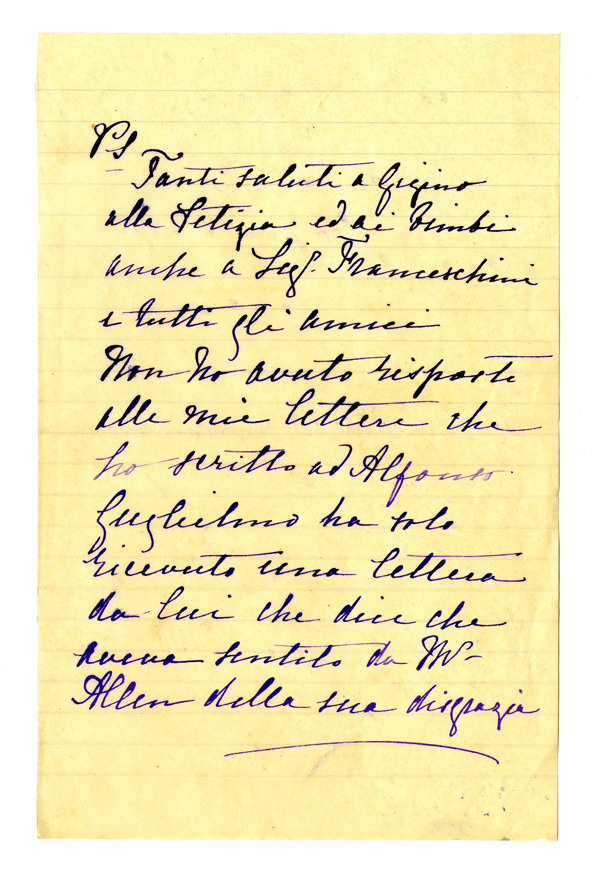 PS
Tanti saluti a Gigino
alla Letizia ed ai bimbi
anche a Sig. Franceschini
e tutti gli amici
Non ho avuto risposte
alle mie lettere che
ho scritto ad Alfonso
Guglielmo ha solo
ricevuto una lettera
da lui che dice che
aveva sentito da Mr
Allen della sua disgrazia